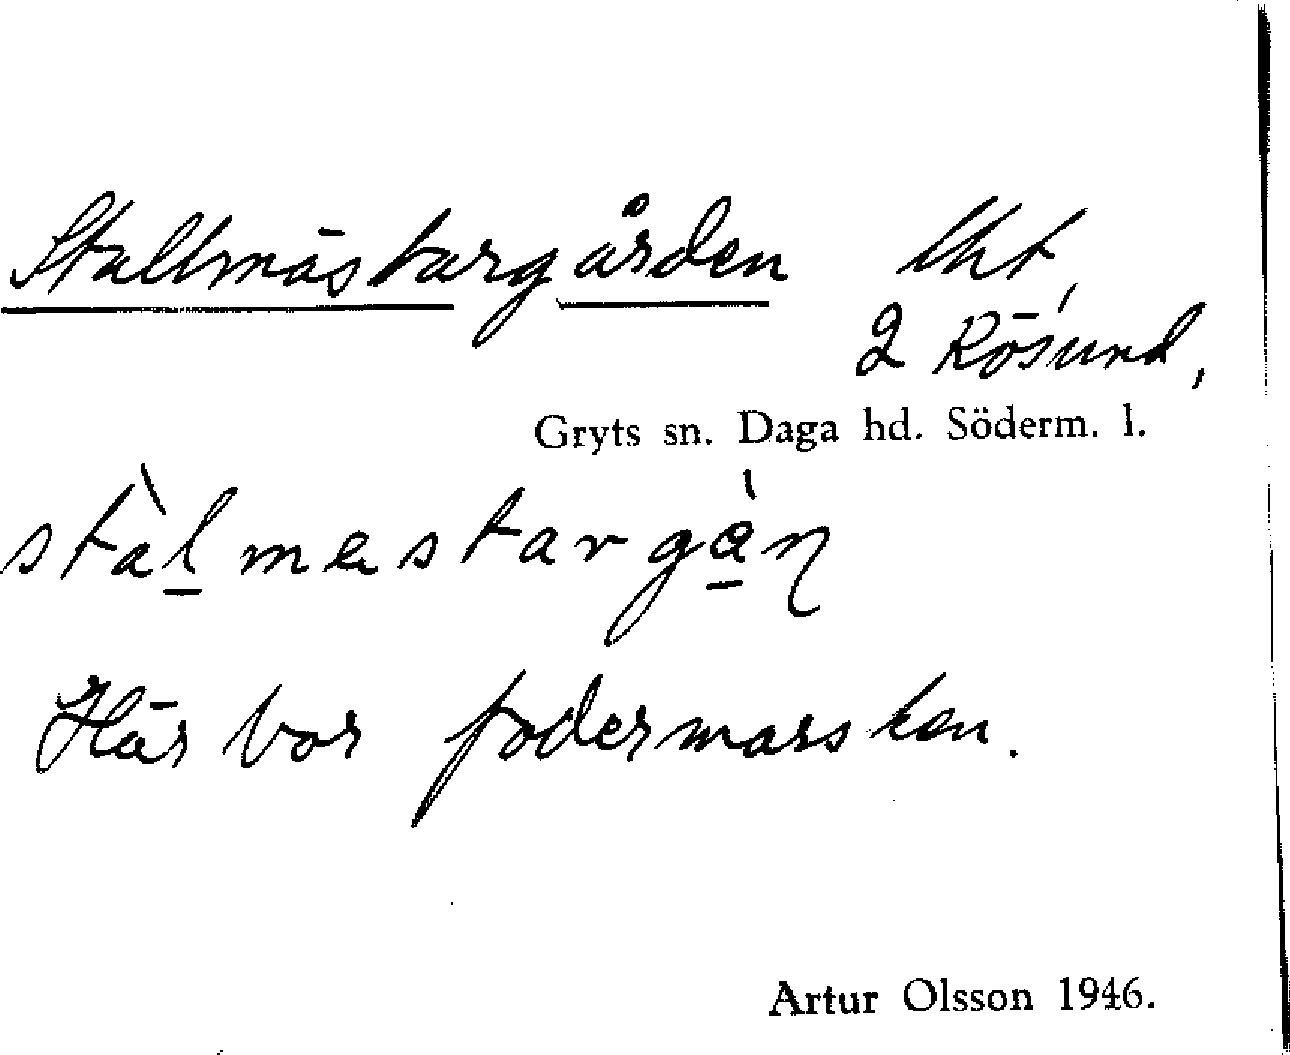 Stallmästargården lht,
2 Rösund,
Gryts sn. Daga hd. Söderm. l.
stàlmæstargàn
Här bor fodermarsken.
Artur Olsson 1946.